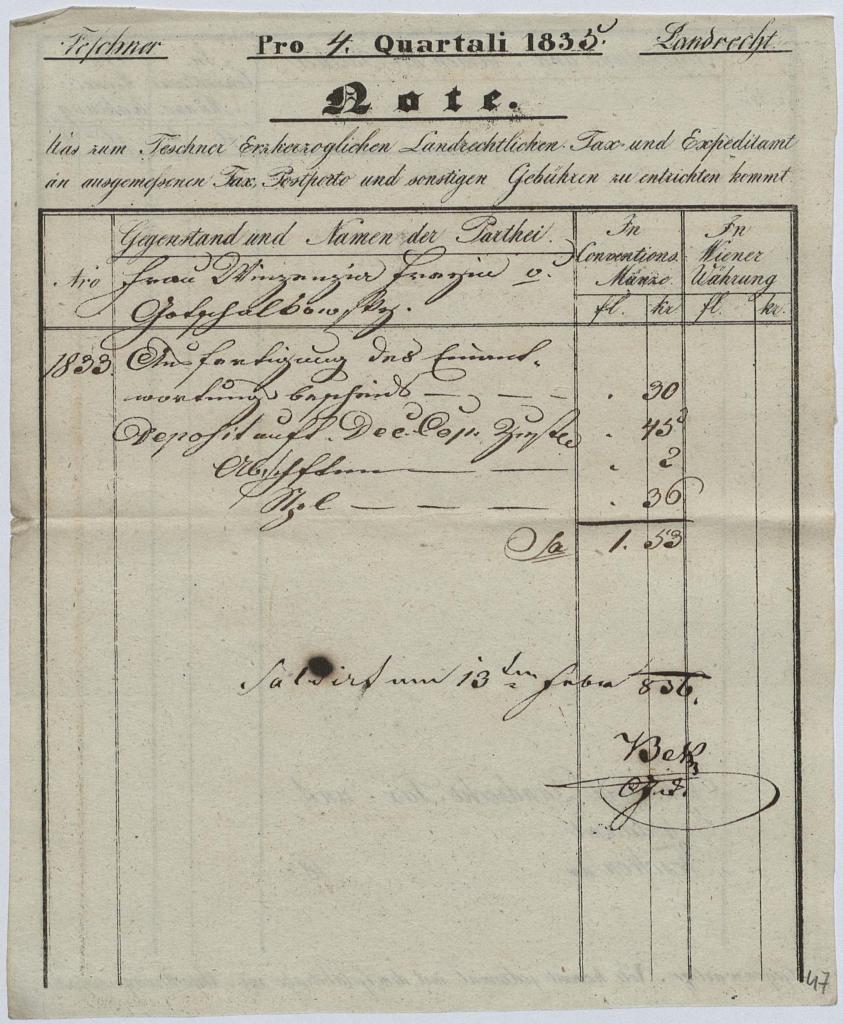 Teschner Pro 4. Quartali 1835. Landrecht
Note.
Was zum Teschner Erzherzoglichen Landrechtlichen Tax- und Expeditamt
an ausgemeßenen Tax, Postporto und sonstigen Gebühren zu entrichten kommt
Nro Gegenstand und Namen der Parthei. In Conventions Münze. In Wiener Währung
Frau Vinzenzia
Gotschalkowsky.
fl. kr fl. kr.
1833. Ausfertigung des Einant-
wortungsbescheids — — — . 30
Deposit auft. Dec. Cop. . 45
— — . 2
Stpl — — — — . 36
Sa 1. 53
Saldirt am 13ten Febr 836.
Bek
47